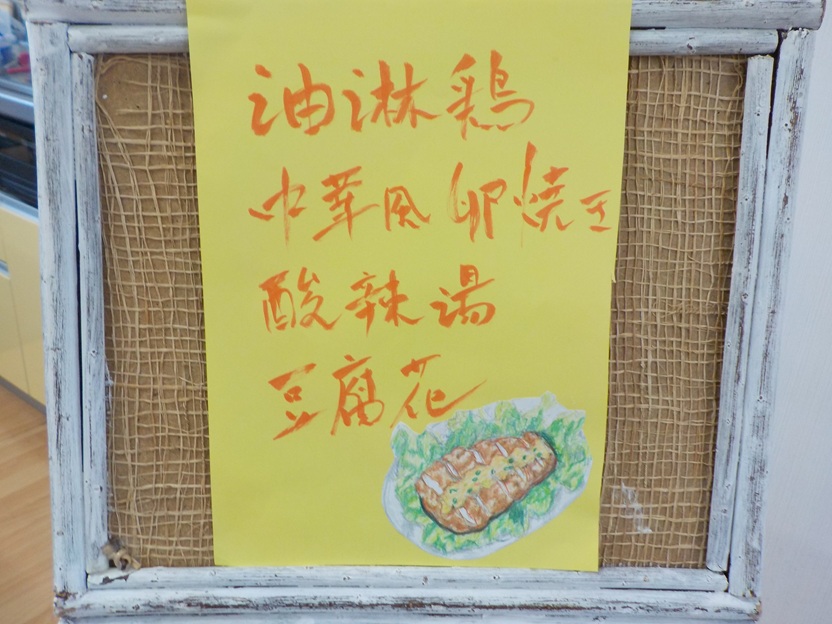 油淋鶏
中華風卵焼き
酸辣湯
豆腐花